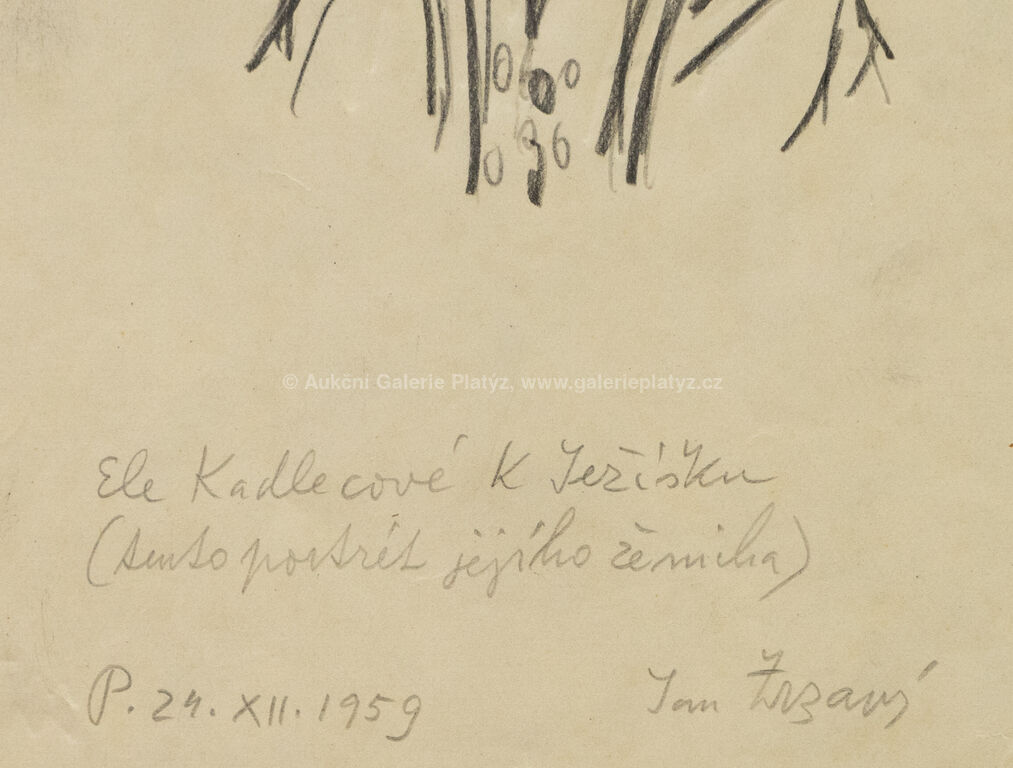 © Aukční Galerie Platýz, www.galerieplatyz.cz
Ele Kadlecové K Ježíšku
(tento portrét jejího ženicha)
P. 24. XII. 1959
Jan Zrzavý